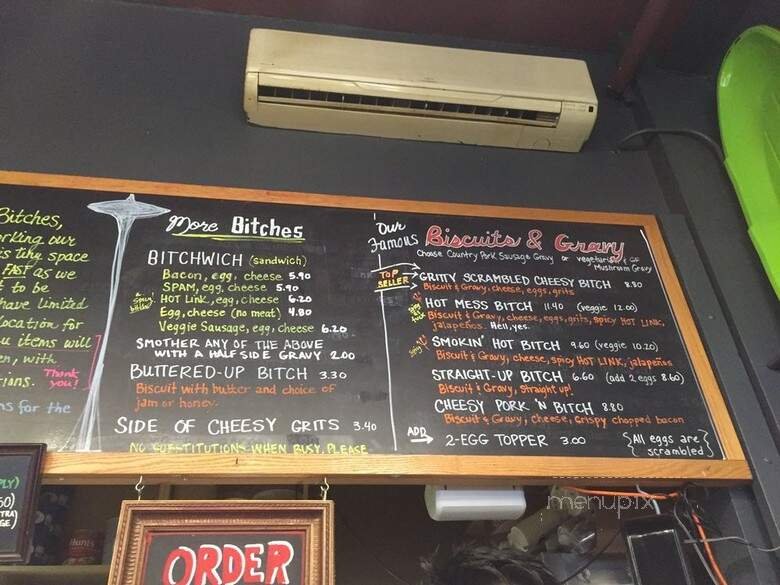 Bitches,
rking our
is tiny space
FAST as we
to be
have limited
location for
u items will
en, with
ions. Thank you!
ns for the
More Bitches
BITCHWICH (sandwich)
Bacon, egg, cheese 5.90
SPAM, egg, cheese 5.90
HOT LINK, egg, cheese 6.20
Egg, cheese (no meat) 4.80
Veggie Sausage, egg, cheese 6.20
SMOTHER ANY OF THE ABOVE
WITH A HALF SIDE GRAVY 2.00
BUTTERED-UP BITCH 3.30
Biscuit with butter and choice of
jam or honey.
SIDE OF CHEESY GRITS 3.40
NO SUBSTITUTIONS WHEN BUSY, PLEASE
Our
Famous Biscuits & Gravy
Choose Country Pork Sausage Gravy or vegetarian GF
Mushroom Gravy
TOP
SELLER
GRITTY SCRAMBLED CHEESY BITCH 8.80
Biscuit & Gravy, cheese, eggs, grits
HOT MESS BITCH 11.40 (veggie 12.00)
Biscuit & Gravy, cheese, eggs, grits, spicy HOT LINK,
jalapeños. Hell, yes.
SMOKIN' HOT BITCH 9.60 (veggie 10.20)
Biscuit & Gravy, cheese, spicy HOT LINK, jalapeños
STRAIGHT-UP BITCH 6.60 (add 2 eggs 8.60)
Biscuit & Gravy, straight up!
CHEESY PORK 'N BITCH 8.80
Biscuit & Gravy, cheese, crispy chopped bacon
ADD 2-EGG TOPPER 3.00
All eggs are
scrambled
PLY)
50)
TRA
GE)
Hunts
ORDER
menupix